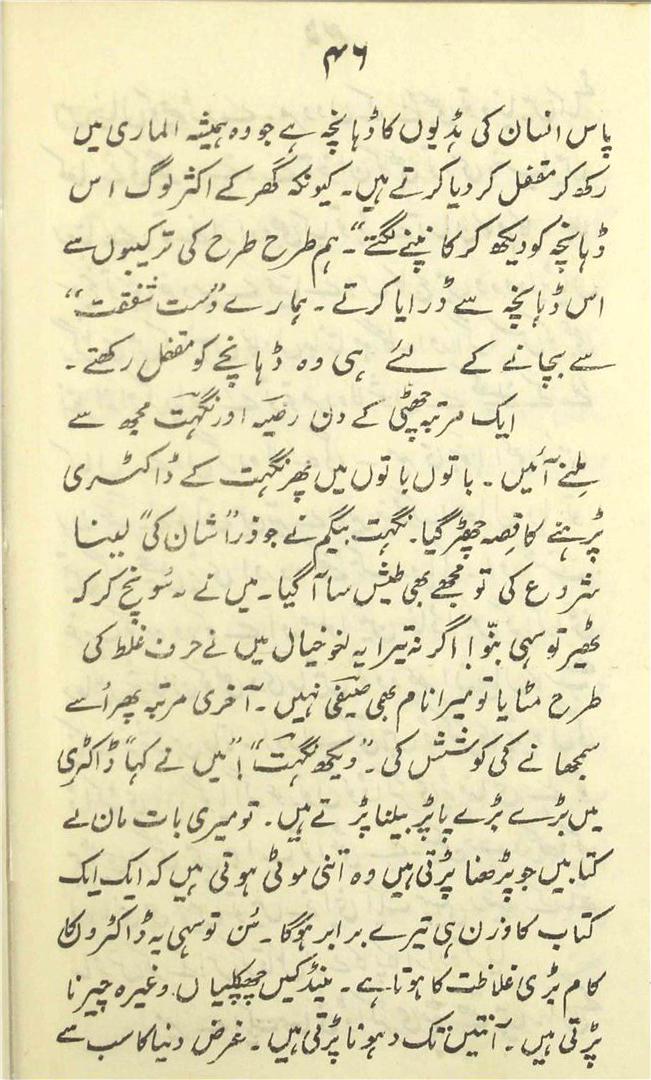 ۴۶
پاس انسان کی ہڈیوں کا ڈہانچہ ہے جو وہ ہمیشہ الماری میں
رکھ کر مقفل کر دیا کرتے ہیں۔ کیونکہ گھر کے اکثر لوگ اس
ڈہانچہ کو دیکھ کر کانپنے لگتے“۔ ہم طرح طرح کی ترکیبوں سے
اس ڈہانچہ سے ڈرایا کرتے۔ ہمارے ”دست شفقت“
سے بچانے کے لئے ہی وہ ڈہانچے کو مقفل رکھتے۔
ایک مرتبہ چھٹی کے دن رضیہ اور نگہت مجھ سے
ملنے آئیں۔ باتوں باتوں میں پھر نگہت کے ڈاکٹری
پڑہنے کا قصہ چھڑ گیا۔ نگہت بیگم نے جو ذرا ”شان کی“ لینا
شروع کی تو مجھے بھی طیش سا آ گیا۔ میں نے یہ سونچ کر کہ
ٹھیر تو سہی بنّو! اگر نہ تیرا یہ لغو خیال میں نے حرف غلط کی
طرح مٹایا تو میرا نام بھی صیفی نہیں۔ آخری مرتبہ پھر اُسے
سمجھانے کی کوشش کی۔ ”دیکھ نگہت“! ”میں نے کہا“ ڈاکٹری
میں بڑے بڑے پاپڑ بیلنا پڑتے ہیں۔ تو میری بات مان لے
کتابیں جو پڑھنا پڑتی ہیں وہ اتنی موٹی ہوتی ہیں کہ ایک ایک
کتاب کا وزن ہی تیرے برابر ہوگا۔ سُن تو سہی یہ ڈاکٹروں کا
کام بڑی غلاظت کا ہوتا ہے۔ مینڈکیں چھپکلیاں وغیرہ چیرنا
پڑتی ہیں۔ آنتیں تک دہونا پڑتی ہیں۔ غرض دنیا کا سب سے